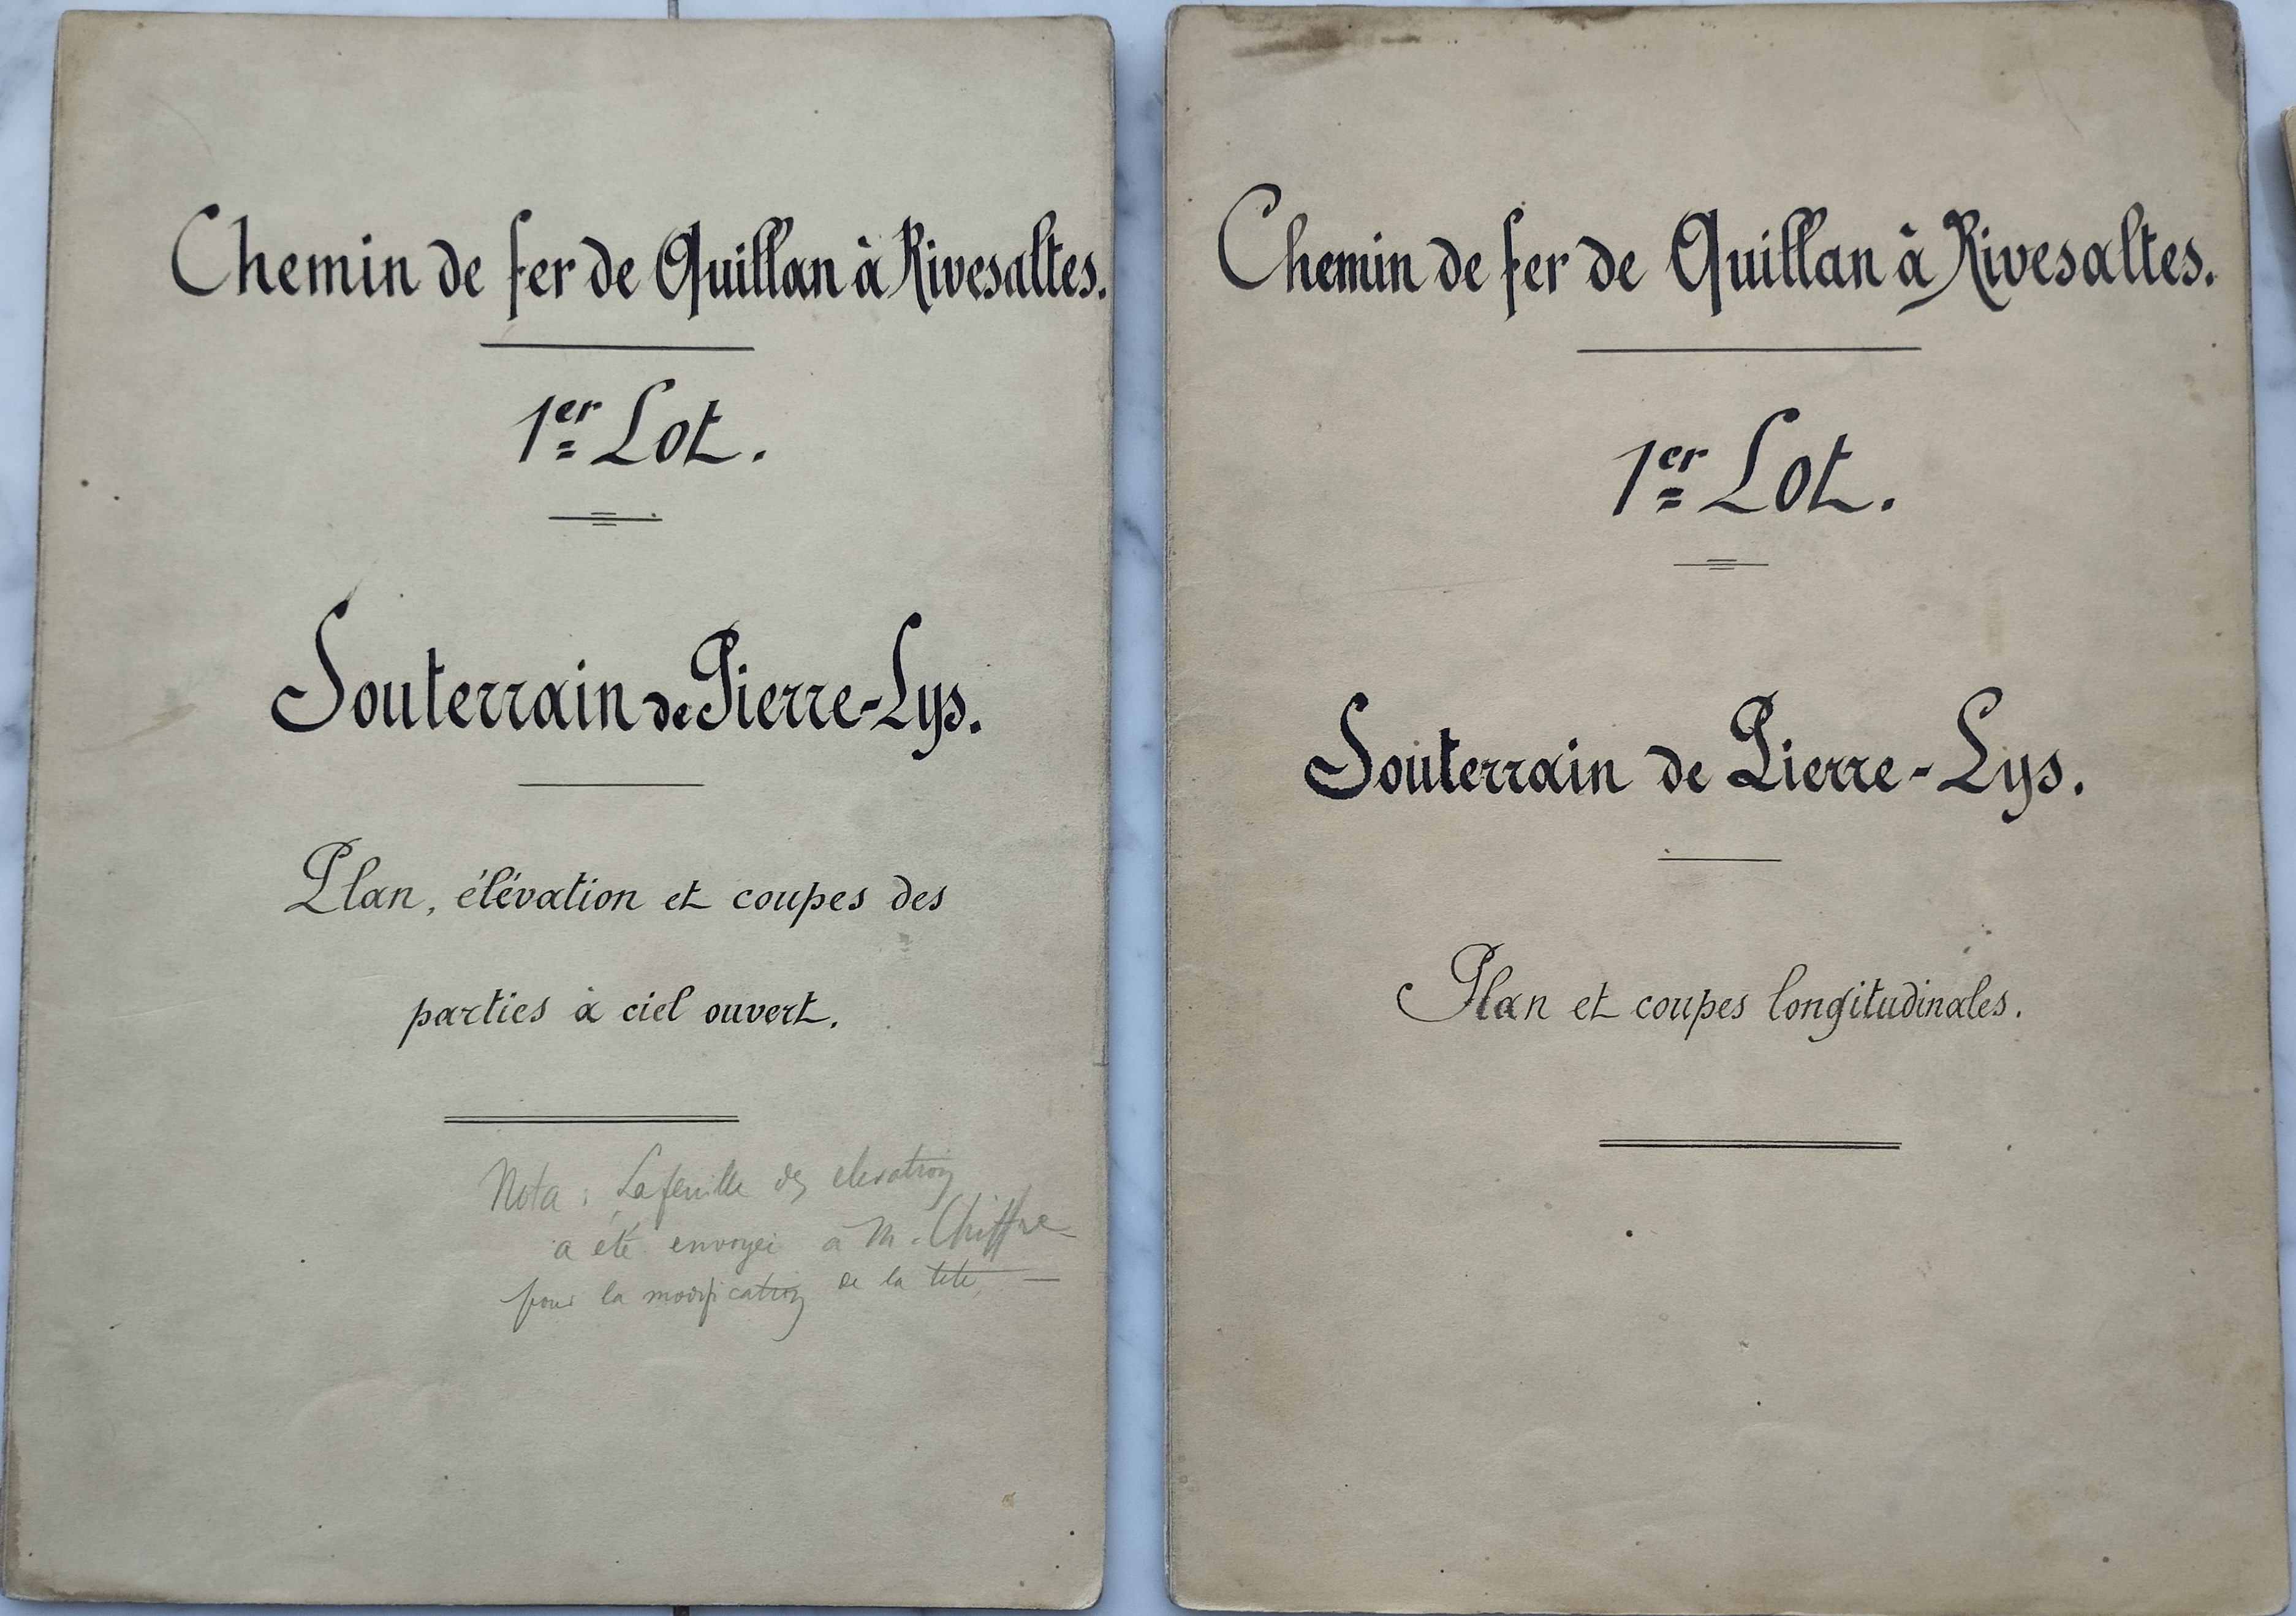 Chemin de fer de Quillan à Rivesaltes.
1er Lot.
Souterrain de Pierre-Lys.
Plan, élévation et coupes des
parties à ciel ouvert.
Nota : La feuille des elevation
a été envoyée à M. Chiffre
pour la modification de la tete,
Chemin de fer de Quillan à Rivesaltes.
1er Lot.
Souterrain de Pierre-Lys.
Plan et coupes longitudinales.